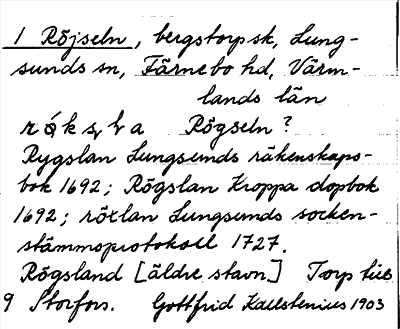 1 Röjseln, bergstorpsk, Lung-
sunds sn, Färnebo hd, Värm-
lands län
Rögseln?
Rygslan Lungsunds räkenskaps-
bok 1692; Rögslan Kroppa dopbok
1692; röxlan Lungsunds socken-
stämmoprotokoll 1727.
Rögsland [äldre stavn] Torp till
9 Storfors. Gottfrid Kallstenius 1903